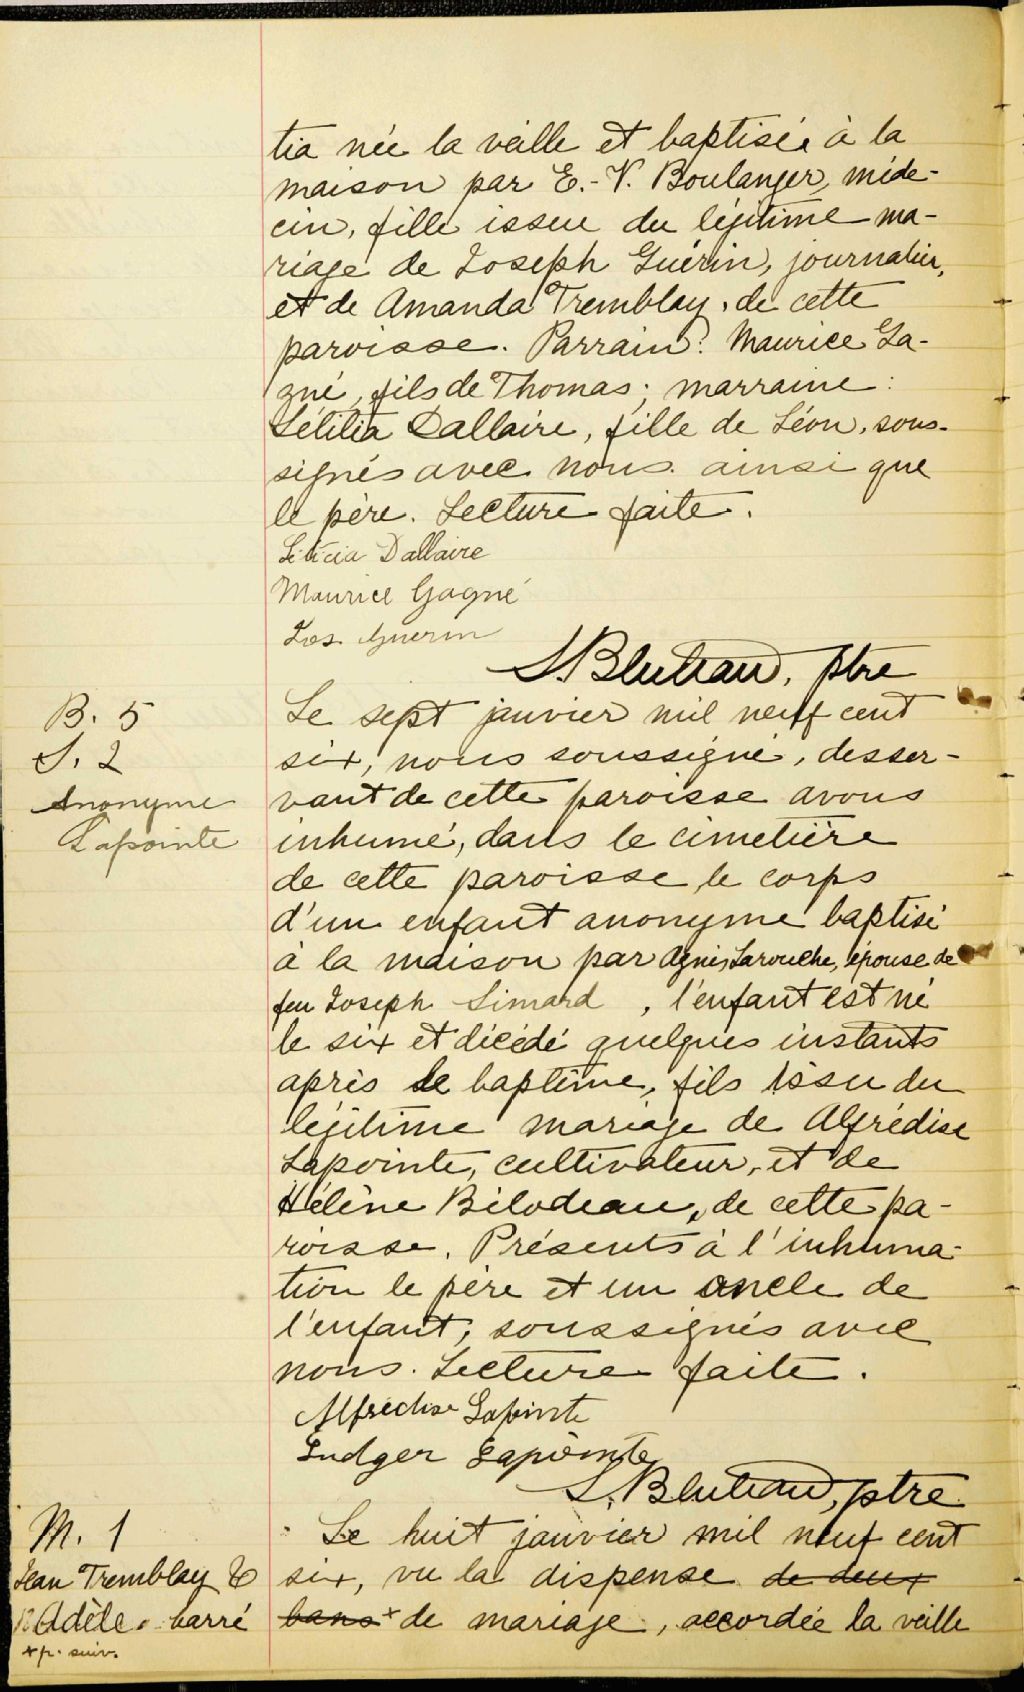 tia née la veille et baptisée à la
maison par E.-V. Boulanger, méde-
cin, fille issue du légitime ma-
riage de Joseph Guérin, journalier,
et de Amanda Tremblay, de cette
paroisse. Parrain: Maurice Ga-
gné, fils de Thomas; marraine:
Létitia Dallaire, fille de Léon, sous-
signés avec nous ainsi que
le père. Lecture faite.
Léticia Dallaire
Maurice Gagné
Jos. Guerin
L. Bluteau, ptre
B. 5
S. 2
Anonyme
Lapointe
Le sept janvier mil neuf cent
six, nous soussigné, desser-
vant de cette paroisse avons
inhumé, dans le cimetière
de cette paroisse le corps
d'un enfant anonyme baptisé
à la maison par Agnès Larouche, épouse de
feu Joseph Simard, l'enfant est né
le six et décédé quelques instants
après le baptême, fils issu du
légitime mariage de Alfrédise
Lapointe, cultivateur, et de
Hélène Bilodeau, de cette pa-
roisse. Présents à l'inhuma-
tion le père et un oncle de
l'enfant, soussignés avec
nous. Lecture faite.
Alfredise Lapointe
Ludger Lapointe
L. Bluteau, ptre
M. 1
Jean Tremblay &
Adèle barré
+ p. suiv.
Le huit janvier mil neuf cent
six, vu la dispense de deux
bans + de mariage, accordée la veille